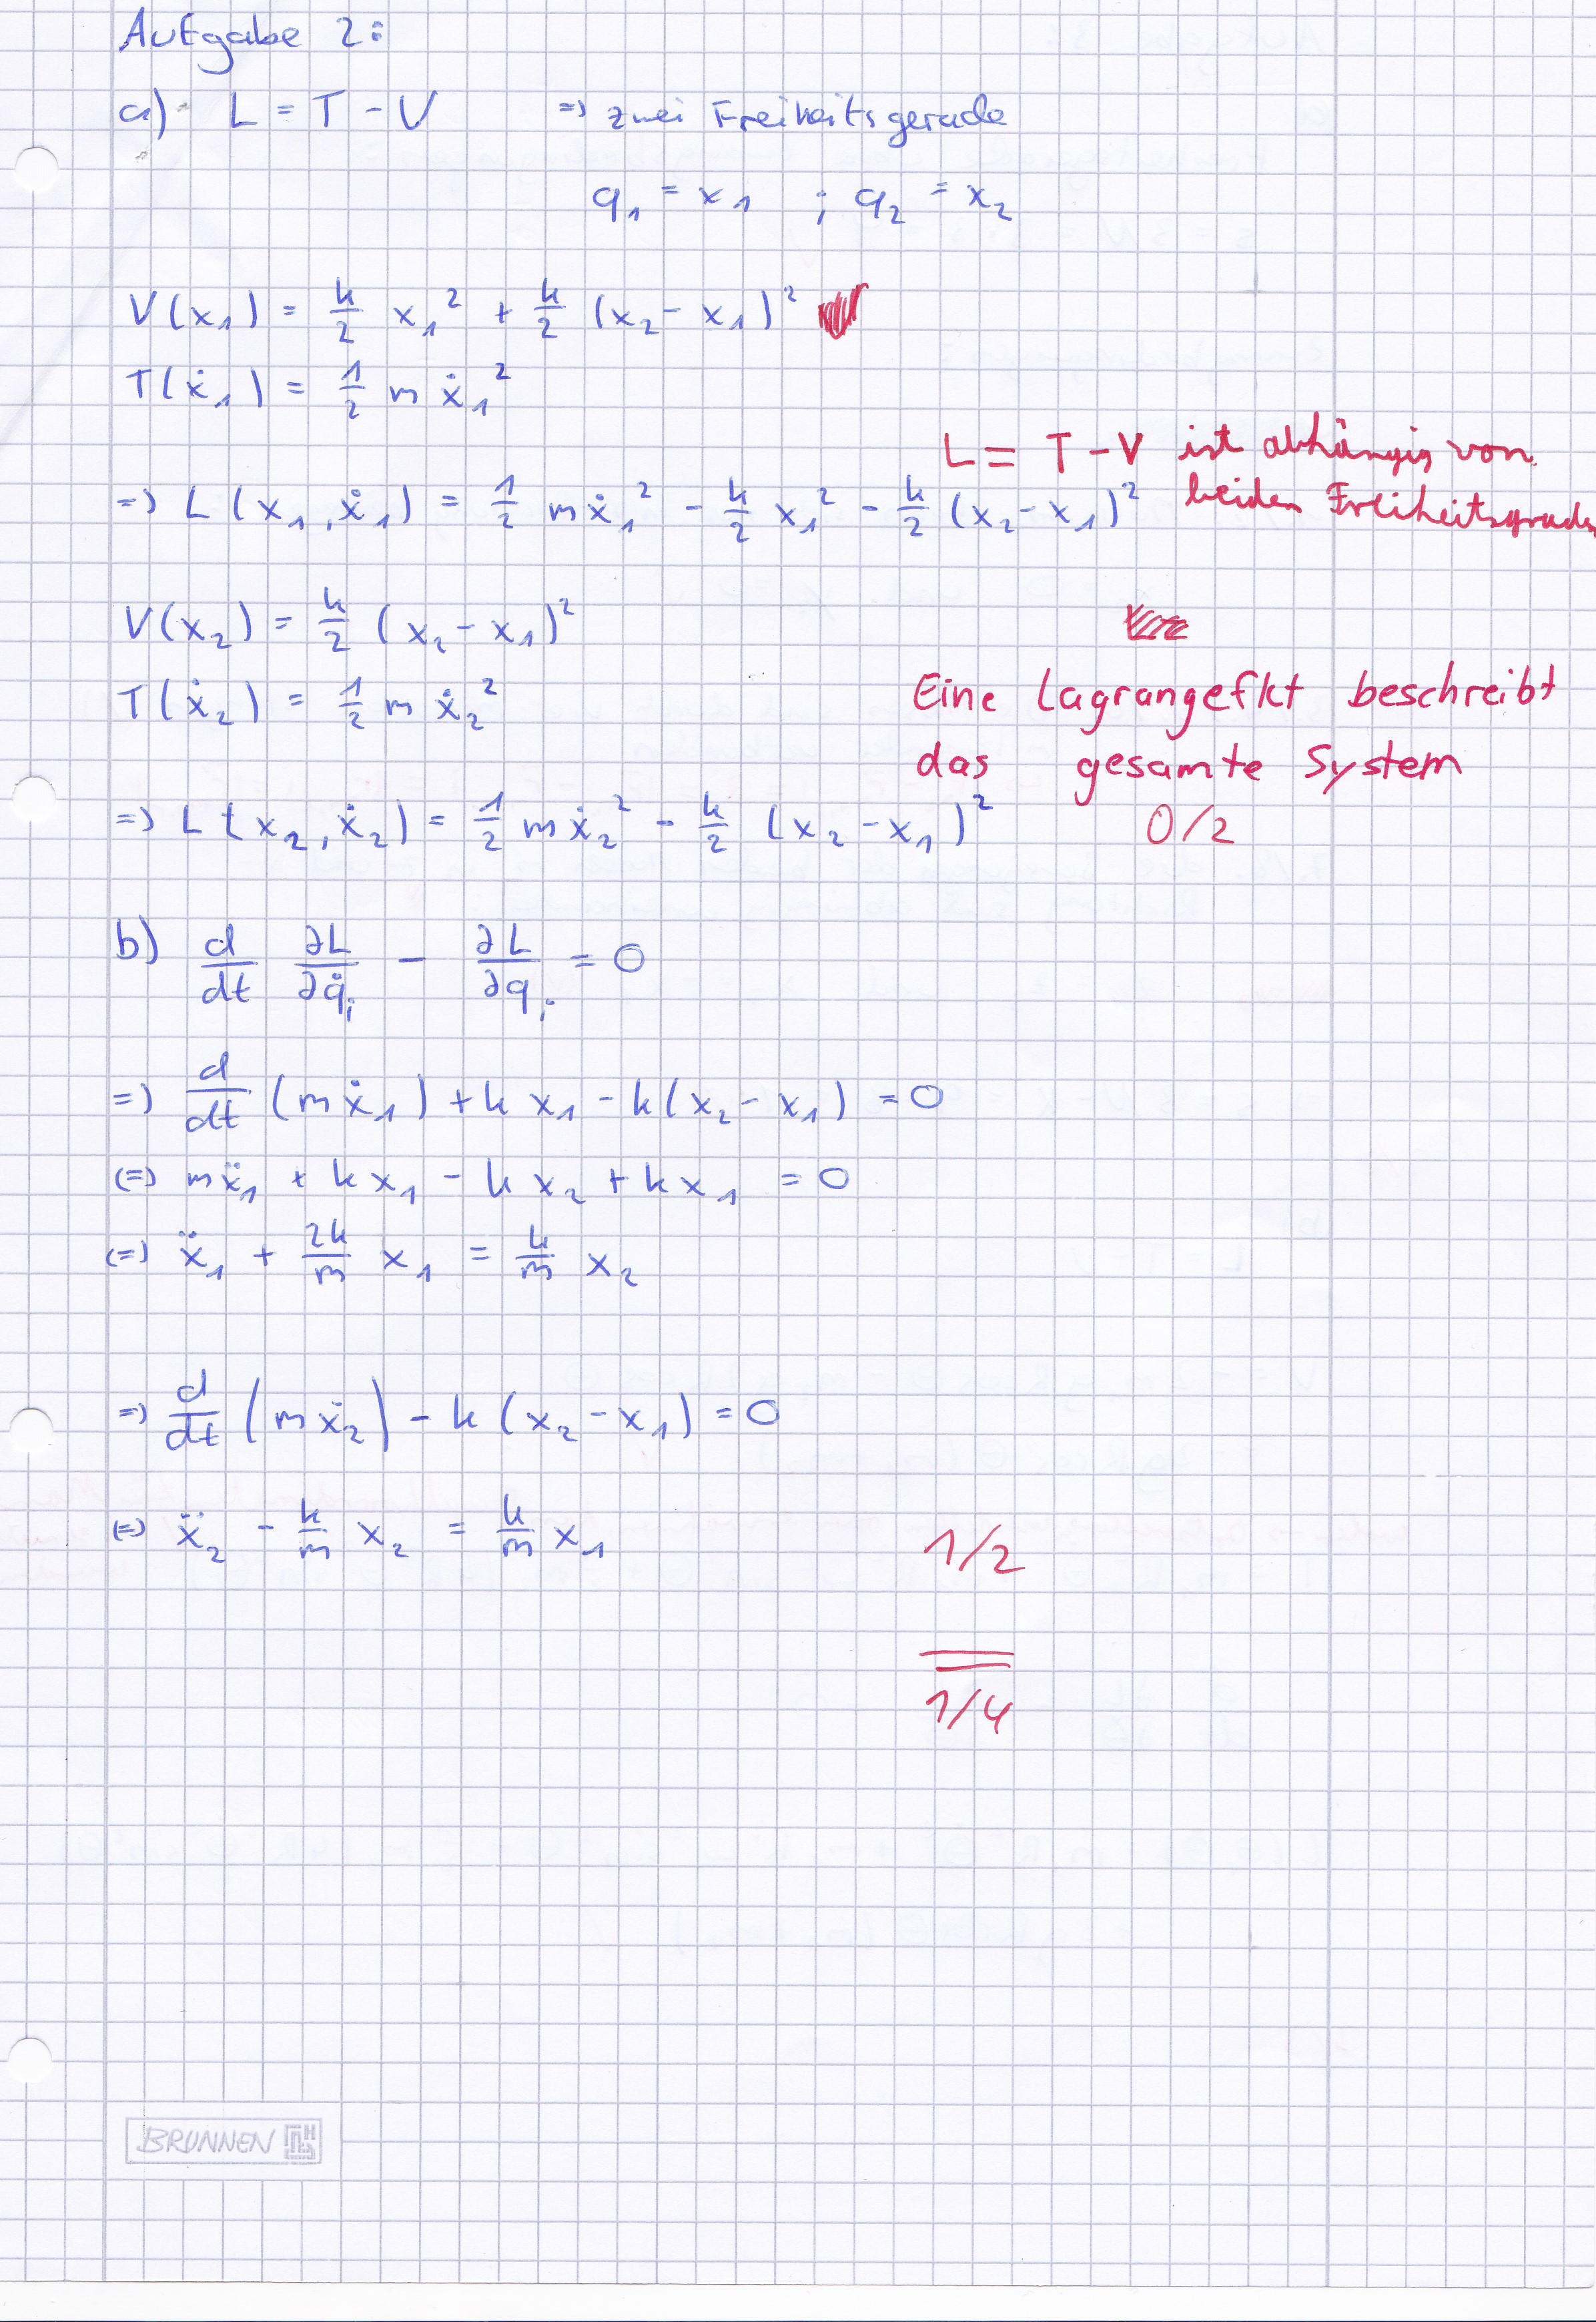 Aufgabe 2:
a) L = T - V => zwei Freiheitsgerade
q₁ = x₁ ; q₂ = x₂
V(x₁) = k/2 x₁² + k/2 (x₂ - x₁)²
T(ẋ₁) = 1/2 m ẋ₁²
L = T - V ist abhängig von
=> L (x₁, ẋ₁) = 1/2 m ẋ₁² - k/2 x₁² - k/2 (x₂ - x₁)² beiden Freiheitsgraden
V(x₂) = k/2 (x₂ - x₁)²
T(ẋ₂) = 1/2 m ẋ₂²
Eine Lagrangefkt beschreibt
das gesamte System
=> L (x₂, ẋ₂) = 1/2 m ẋ₂² - k/2 (x₂ - x₁)² 0/2
b) d/dt ∂L/∂q̇ᵢ - ∂L/∂qᵢ = 0
=> d/dt (m ẋ₁) + k x₁ - k(x₂ - x₁) = 0
(=) m ẍ₁ + k x₁ - k x₂ + k x₁ = 0
(=) ẍ₁ + 2k/m x₁ = k/m x₂
=> d/dt (m ẋ₂) - k (x₂ - x₁) = 0
(=) ẍ₂ - k/m x₂ = k/m x₁ 1/2
1/4
BRUNNEN